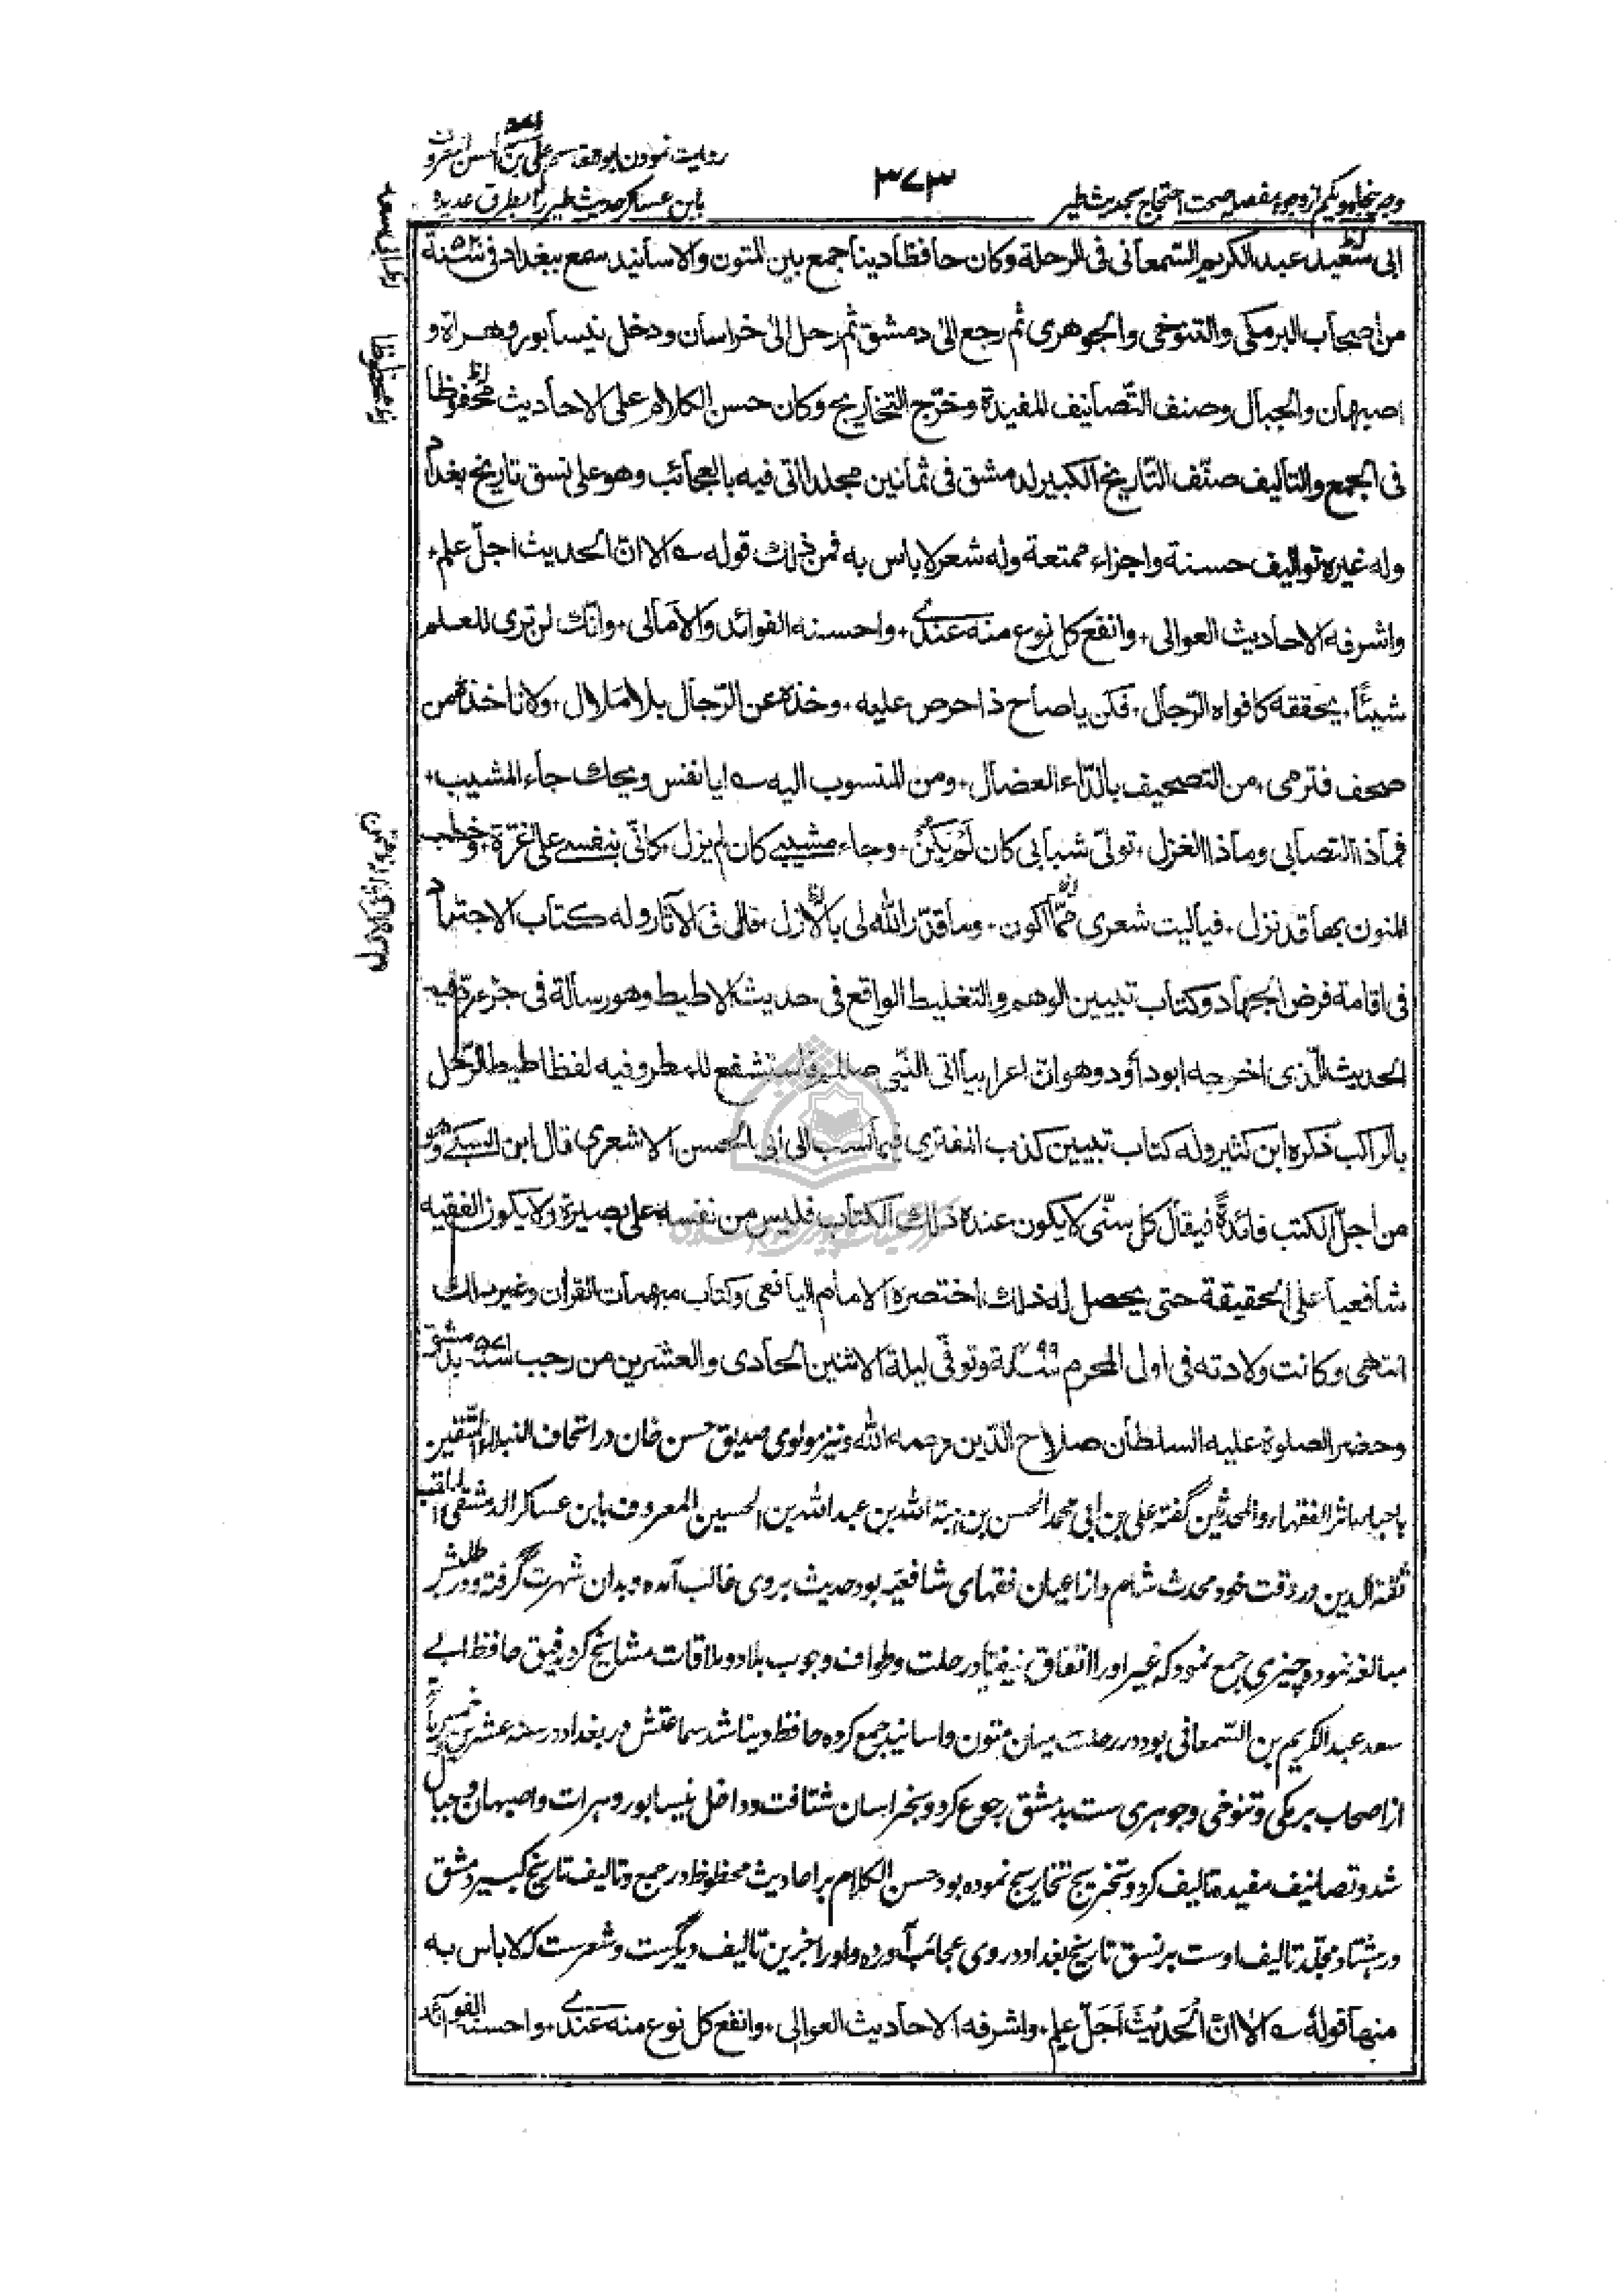 وجه پنجاه و یکم از وجوه مفصله صحت احتجاج بحدیث طیر
۳۷۳
روایت نمودن ابو القاسم علی بن الحسن المعروف
بابن عساکر حدیث طیر را بطرق عدیده
ابی سعید عبد الکریم السمعانی فی الرحلة وکان حافظا دینا جمع بین المتون والاسانید سمع ببغداد فی سنة
من اصحاب البرمکی والتنوخی والجوهری ثم رجع الی دمشق ثم رحل الی خراسان ودخل نیسابور وهراة و
اصبهان والجبال وصنف التصانیف المفیدة وخرج التخاریج وکان حسن الکلام علی الاحادیث محفوظا
فی الجمع والتالیف صنّف التاریخ الکبیر لدمشق فی ثمانین مجلدا اتی فیه بالعجائب وهو علی نسق تاریخ بغداد
وله غیره توالیف حسنة واجزاء ممتعة وله شعر لا باس به فمن ذلك قوله ے الا انّ الحدیث اجلّ علم٠
واشرفه الاحادیث العوالی٠ وانفع کل نوع منه عندی٠ واحسنه الفوائد والامالی٠ وانّك لن تری للعلم
شیئا٠ یحققه کافواه الرّجال٠ فکن یا صاح ذا حرص علیه٠ وخذه عن الرّجال بلا ملال٠ ولا تاخذه من
صحف فترمی٠ من التصحیف بالدّاء العضال٠ ومن المنسوب الیه ے ایا نفس ویحك جاء المشیب٠
فماذا التصابی وماذا الغزل٠ تولّی شبابی کان لم یکن٠ وجاء مشیبی کان لم یزل٠ کانّی بنفسی علی غرّة٠ وخطب
المنون بها قد نزل٠ فیا لیت شعری ممّا اکون٠ وما قدّر الله لی بالازل٠ وله کتاب الاجتهاد
فی اقامة فرض الجهاد وکتاب تبیین الوهم والتغلیط الواقع فی حدیث الاطیط وهو رسالة فی جزء ردّ فیه
الحدیث الّذی اخرجه ابو داود وهو انّ اعرابیا اتی النّبی صلعم فاستشفع للمطر وفیه لفظ اطیط الرّحل
بالراکب ذکره ابن کثیر وله کتاب تبیین کذب المفتری فیما نسب الی ابی الحسن الاشعری قال ابن السبکی وهو
من اجلّ الکتب فائدةً فیقال کل سنّی لا یکون عنده ذلك الکتاب فلیس من نفسه علی بصیرة ولا یکون الفقیه
شافعیا علی الحقیقة حتی یحصل له ذلك اختصره الامام الیافعی وکتاب مبهمات القران وغیر ذلك
انتهی وکانت ولادته فی اول المحرم ۴۹۹ سنة وتوفّی لیلة الاثنین الحادی والعشرین من رجب ۵۷۱ سنة بدمشق
وحضر الصلوة علیه السلطان صلاح الدّین رحمه الله ونیز مولوی صدیق حسن خان در اتحاف النبلاء المتّقین
باحیاء ماثر الفقهاء والمحدثین گفته علی بن ابی محمد الحسن بن هبة الله بن عبد الله بن الحسین المعروف بابن عساکر الدمشقی الملقب
ثقة الدین در وقت خود محدث شام و از اعیان فقهای شافعیّه بود حدیث بر وی غالب آمده و بدان شهرت گرفته و در طلبش
مبالغه نمود و چیزی جمع نمود که غیر او را اتفاق نیفتاد رحلت وطواف وجوب بلاد و ملاقات مشایخ کرد رفیق حافظ ابی
سعد عبد الکریم بن السّمعانی بود در رحلت میان متون واسانید جمع کرده حافظ دینا شد سماعتش در بغداد در سنه عشرین وخمسمائة
از اصحاب برمکی و تنوخی وجوهری ست بدمشق رجوع کرد و بخراسان شتافت و داخل نیسابور و هرات و اصبهان و جبال
شد و تصانیف مفیده تالیف کرد و تخریج تخاریج نموده بود حسن الکلام بر احادیث محظوظ در جمع و تالیف تاریخ کبیر دمشق
در هشتاد مجلّد تالیف اوست بر نسق تاریخ بغداد در وی عجائب آورده و او را جز این تالیف دیگرست و شعرست که لا باس به
منها قوله ے الا انّ الحدیث اجلّ علم٠ واشرفه الاحادیث العوالی٠ وانفع کل نوع منه عندی٠ واحسنه الفوائد